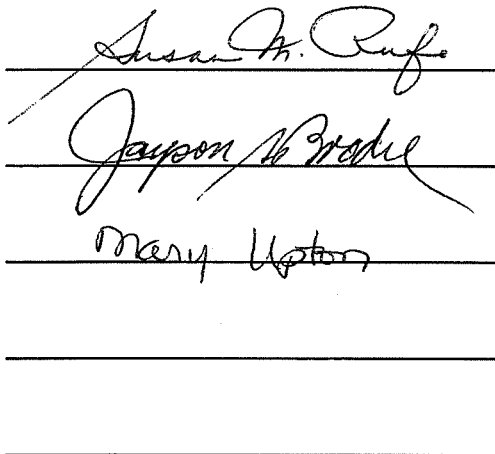 Susan M. Rufe
Jayson Brodie
Mary Upton